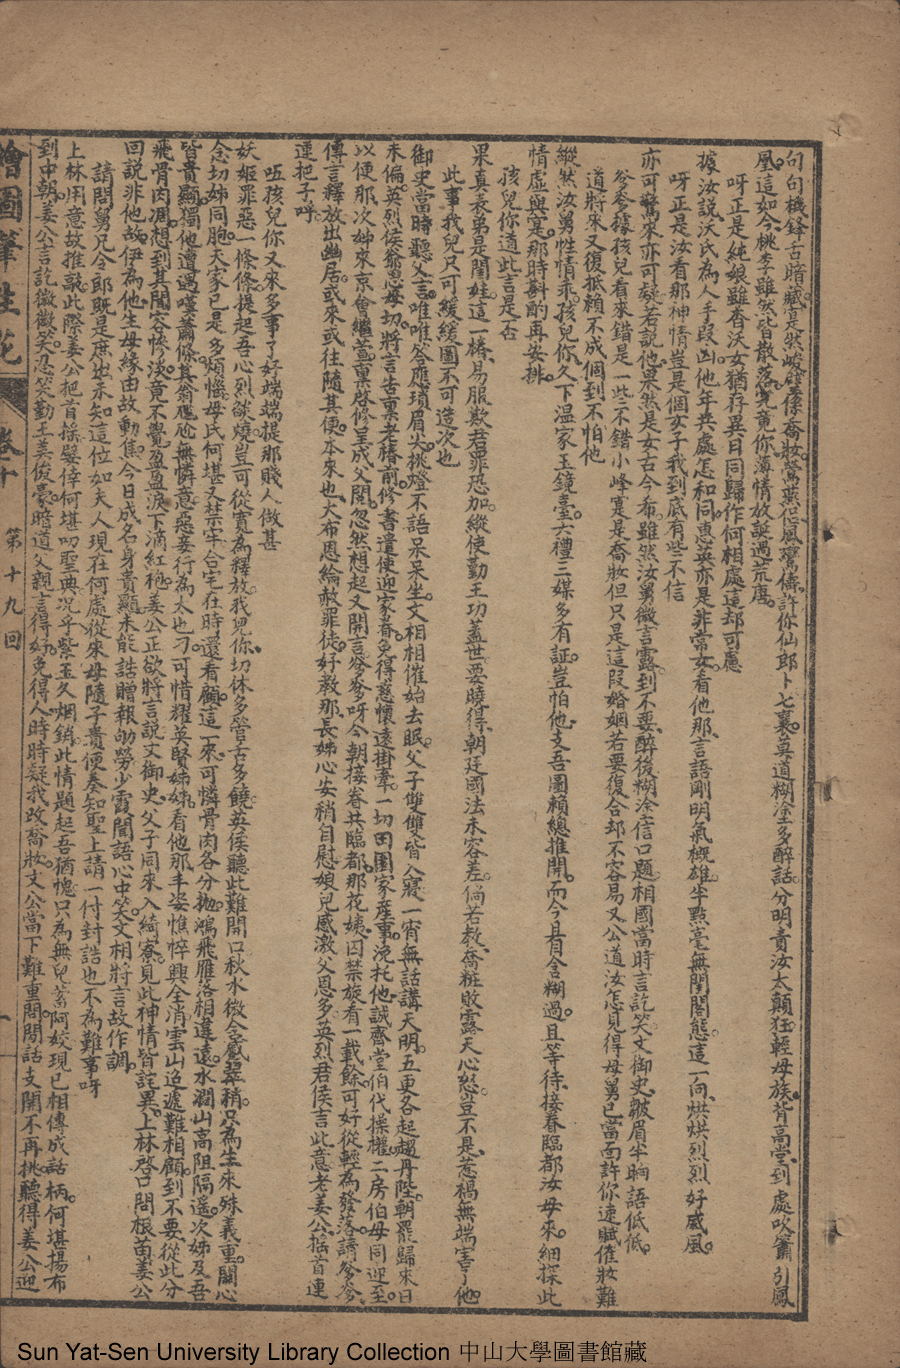 句句機鋒舌暗藏寔然峻壁係喬妝鶯燕心風鸞儔許你仙郎卜七襄莫道糊塗多醉話分明責汝太顛狂輕母族背高堂到處吹簫引鳳
風這如今桃李雖然皆散落究竟你薄情放誕過荒唐
呀正是純娘雖杳沃女猶存異日同歸作何相處這却可慮
據汝說沃氏為人手段凶他年共處怎和同惠英亦是非常女看他那言語剛明氣概雄半點毫無閨閣態這一向烘烘烈烈好威風
呀正是汝看那神情豈是個女子我到底有些不信
亦可驚來亦可疑若說他果然是女古今希雖然汝舅微言露到不要醉後糊塗信口題相國當時言訖笑文御史皺眉半晌語低低
爹爹據孩兒看來錯是一些不錯小峰寔是喬妝但只是這段婚姻若要復合却不容易又公道汝怎見得母舅已當面許你速賦催妝難
道將來又復抵賴不成個到不怕他
縱然汝舅性情乖孩兒你久下溫家玉鏡臺六禮三媒多有証豈怕他支吾圖賴總推開而今且含糊過且等待接眷臨都汝母來細探此
情虛與寔那時斟酌再安排
孩兒你道此言是否
果真表弟是閨娃這一樁易服欺君罪恐加縱使勤王功蓋世要曉得朝廷國法未容差倘若教喬粧敗露天心怒豈不是惹禍無端害了他
此事我兒只可緩緩圖不可造次也
御史當時聽父言唯唯答應瑣眉尖挑燈不語呆呆坐文相相催始去眠父子雙雙皆入寢一宵無話講天明五更各起趨丹陛朝罷歸來日
未偏英烈侯爺思母切將言告稟老椿前修書遣使迎家眷免得慈懷遠掛牽一切田園家產事浼托他誠齋堂伯代操權二房伯母同迎至
以便那次姊來京會繼萱稟啓修呈成父閱忽然想起又開言爹爹呀今朝接眷共臨都那花姨囚禁旋看一載餘可好從輕為發落請爹爹
傳言釋放出幽居或來或往隨其便本來也大布恩綸赦罪徒好教那長姊心安稍自慰娘兒感激父恩多英烈君侯言此意老姜公搖首連
連把子呼
呸孩兒你又來多事了好端端提那賤人做甚
妖姬罪惡一條條提起吾心烈燄燒豈可從寬為釋放我兒你切休多管舌多饒英侯聽此難開口秋水微含蹙翠稍只為生來殊義重關心
念切姊同胞大家已是多煩惱母氏何堪又禁牢合宅在時還看顧這一來可憐骨肉各分抛鴻飛雁落相違遠水濶山高阻隔遙次姊及吾
皆貴顯獨他遭遇嘆蕭條其翁尷尬無憐意惡妾行為太也刁可惜耀英賢姊姊看他那丰姿憔悴興全消雲山迢遞難相顧到不要從此分
飛骨肉凋想到其間容慘淡竟不覺盈盈淚下滴紅袍姜公正欲將言說文御史父子同來入綺寮見此神情皆詫異上林啓口問根苗姜公
回說非他故伊為他生母緣由故動焦今日成名身貴顯未能誥贈報劬勞少霞聞語心中笑文相將言故作調
請問舅兄令郎既是庶出未知這位如夫人現在何處從來母隨子貴便奏知聖上請一付封誥也不為難事呀
上林用意故推敲此際姜公把首搖嬖倖何堪叨聖典况乎紫玉久烟銷此情題起吾猶愧只為無兒蓄阿姣現已相傳成話柄何堪揚布
到中朝姜公言訖微微笑忍笑勤王美俊豪暗道父親言得好免得人時時疑我改喬妝文公當下難重問閒話支開不再挑聽得姜公迎
繪圖筆生花　卷十　第十九回　一
Sun Yat-Sen University Library Collection 中山大學圖書館藏